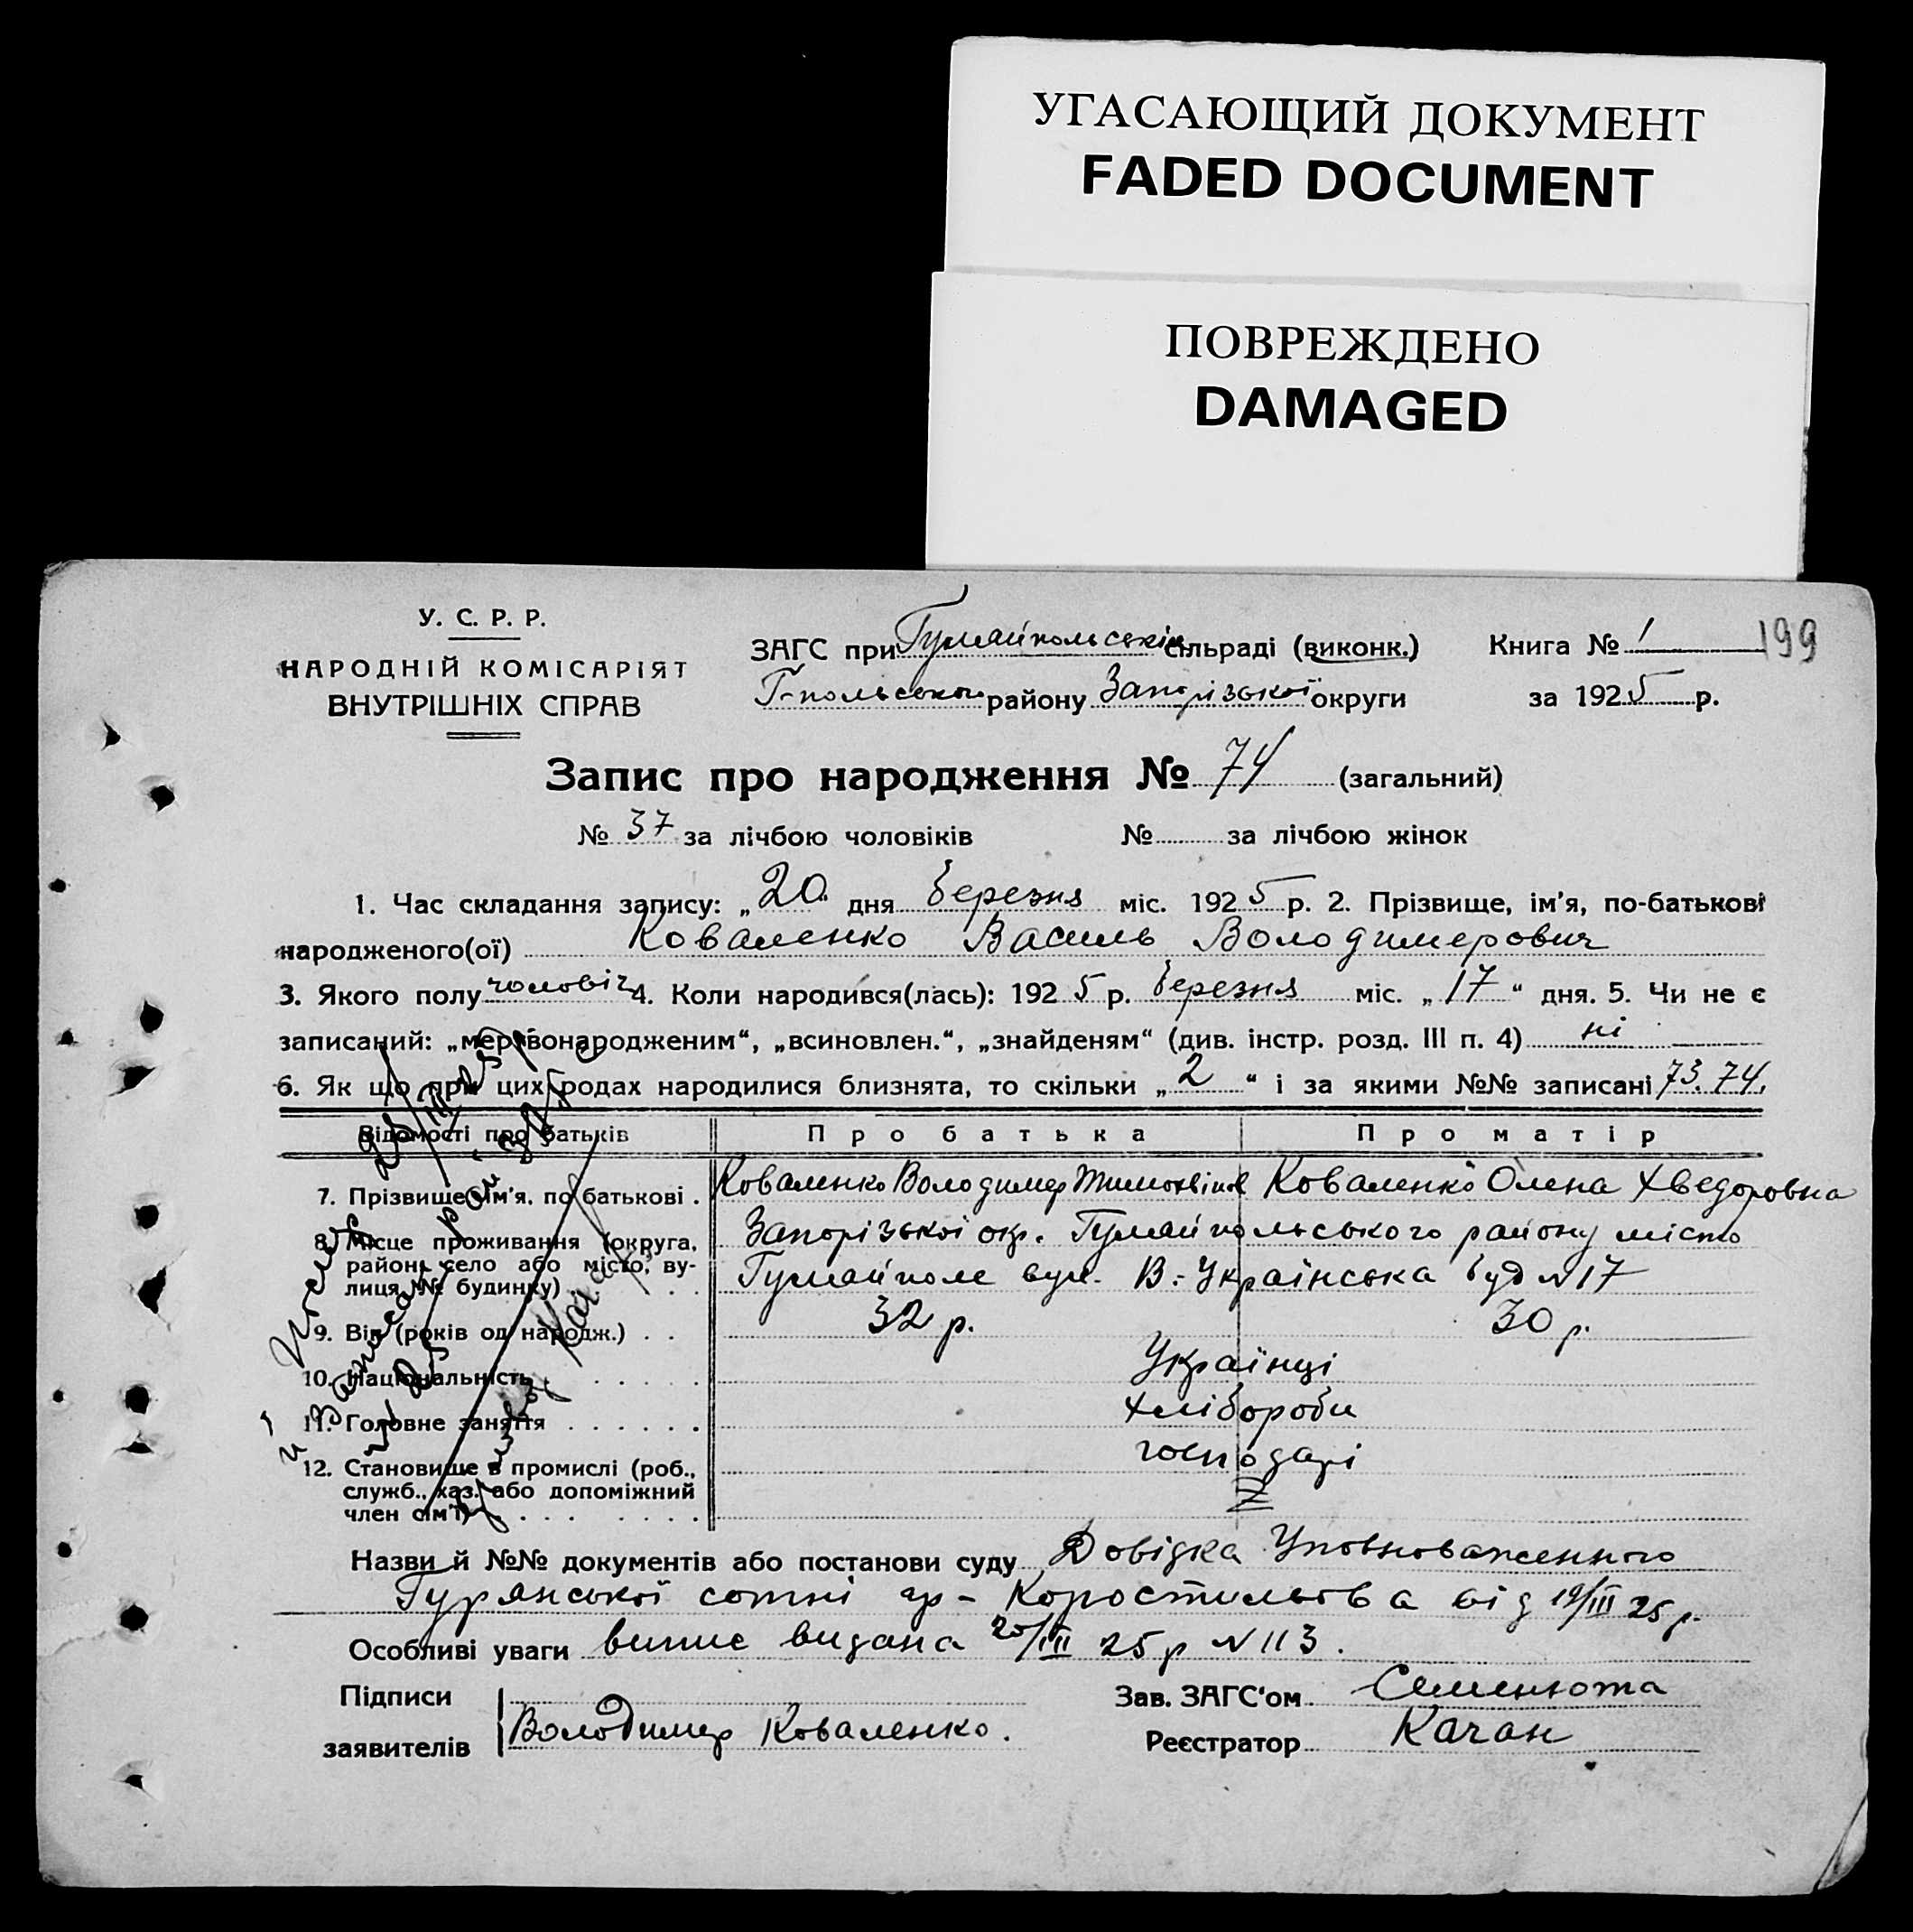 УГАСАЮЩИЙ ДОКУМЕНТ
FADED DOCUMENT
ПОВРЕЖДЕНО
DAMAGED
У. С. Р. Р.
НАРОДНІЙ КОМІСАРІЯТ
ВНУТРІШНІХ СПРАВ
ЗАГС при Гуляйпольськім сільраді (виконк.) Книга № 1 199
Г-польського району Запорізької округи за 1925 р.
Запис про народження № 74 (загальний)
№ 37 за лічбою чоловіків № за лічбою жінок
1. Час складання запису: „20“ дня березня міс. 1925 р. 2. Прізвище, ім’я, по-батькові
народженого(ої) Коваленко Василь Володимерович
3. Якого полу чоловіч 4. Коли народився(лась): 1925 р. березня міс. „17“ дня. 5. Чи не є
записаний: „мертвонародженим“, „всиновлен.“, „знайденям“ (див. інстр. розд. III п. 4) ні
6. Як що при цих родах народилися близнята, то скільки „2“ і за якими №№ записані 73. 74.
Відомості про батьків Про батька Про матір
7. Прізвище, ім’я, по батькові . Коваленко Володимер Тимохвійов Коваленко Олена Хведоровна
8. Місце проживання (округа, Запорізької окр. Гуляйпольського району місто
район, село або місто, ву-
лиця, № будинку) . . . Гуляйполе вул. В.-Українська буд N 17
9. Вік (років од народж.) . . 32 р. 30 р.
10. Національність . . . . . . Українці
11. Головне заняття . . . . . . Хлібороби
12. Становище в промислі (роб., господарі
служб., хаз. або допоміжний
член сім’ї) . . . . . . .
Назви й №№ документів або постанови суду Довідка Уповноваженного
Гурянської сотні гр- Коростильова від 19/III 25 р.
Особливі уваги випис видана 20/III 25 р N 113.
Підписи Зав. ЗАГС’ом Семенюта
заявителів Володимер Коваленко. Реєстратор Качан